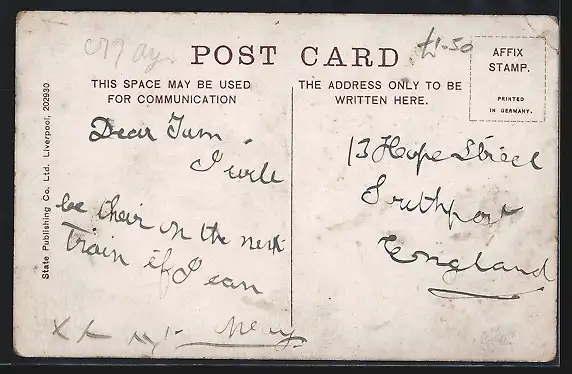 £1-50
POST CARD
AFFIX
STAMP.
PRINTED
IN GERMANY.
THIS SPACE MAY BE USED
FOR COMMUNICATION
THE ADDRESS ONLY TO BE
WRITTEN HERE.
State Publishing Co. Ltd. Liverpool, 202930
Dear
I will
be their on the next
Train if I can
x x x
13 Hope Street
Southport
England